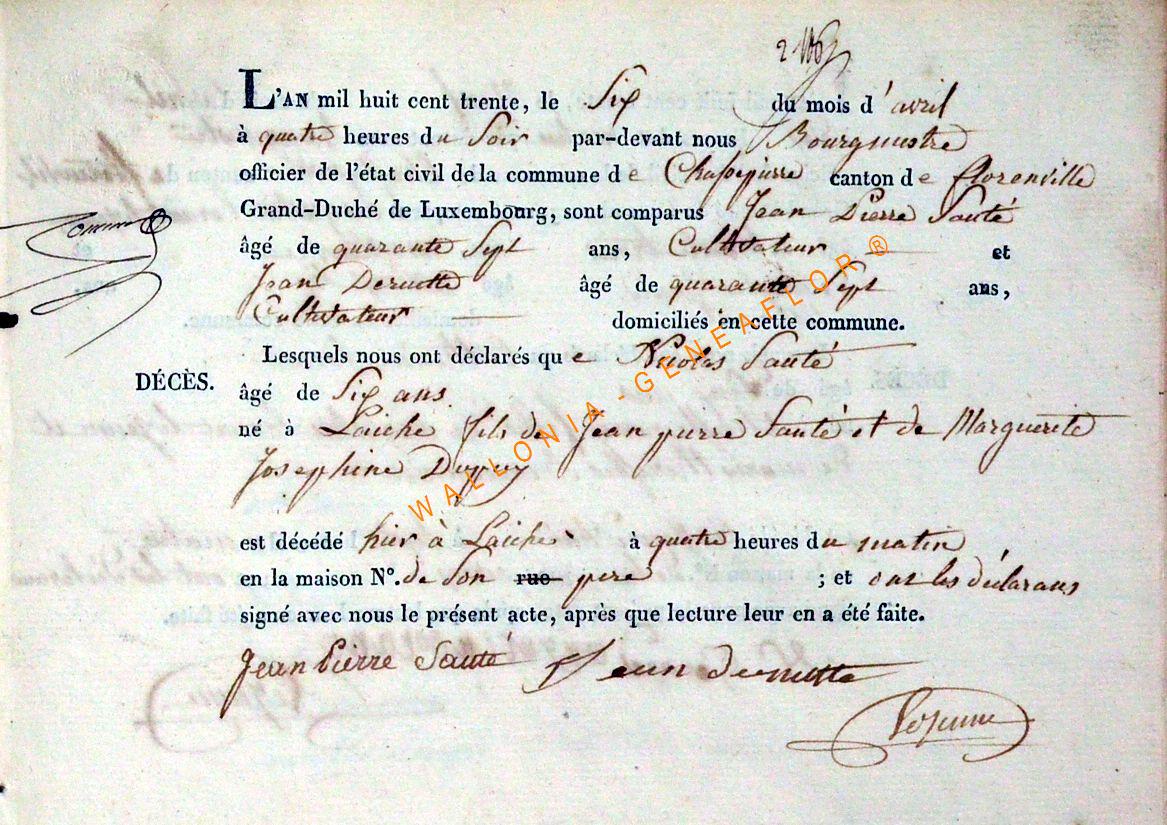 L'AN mil huit cent trente, le Six du mois d'avril
à quatre heures du Soir par-devant nous Bourgmestre
officier de l'état civil de la commune de Chassepierre canton de florenville
Grand-Duché de Luxembourg, sont comparus Jean Pierre Santé
âgé de quarante Sept ans, Cultivateur et
Jean Dernotte âgé de quarante Sept ans,
Cultivateur domiciliés en cette commune.
Lesquels nous ont déclarés que Nicolas Santé
DÉCÈS.
âgé de Six ans
né à Laiche fils de Jean pierre Santé et de Marguerite
Josephine Dupuy
est décédé hier à Laiche à quatre heures du matin
en la maison N°. de Son rue pere ; et ont les déclarans
signé avec nous le présent acte, après que lecture leur en a été faite.
Jean Pierre Santé Jean dernotte
WALLONIA - GENEAFLOR ®